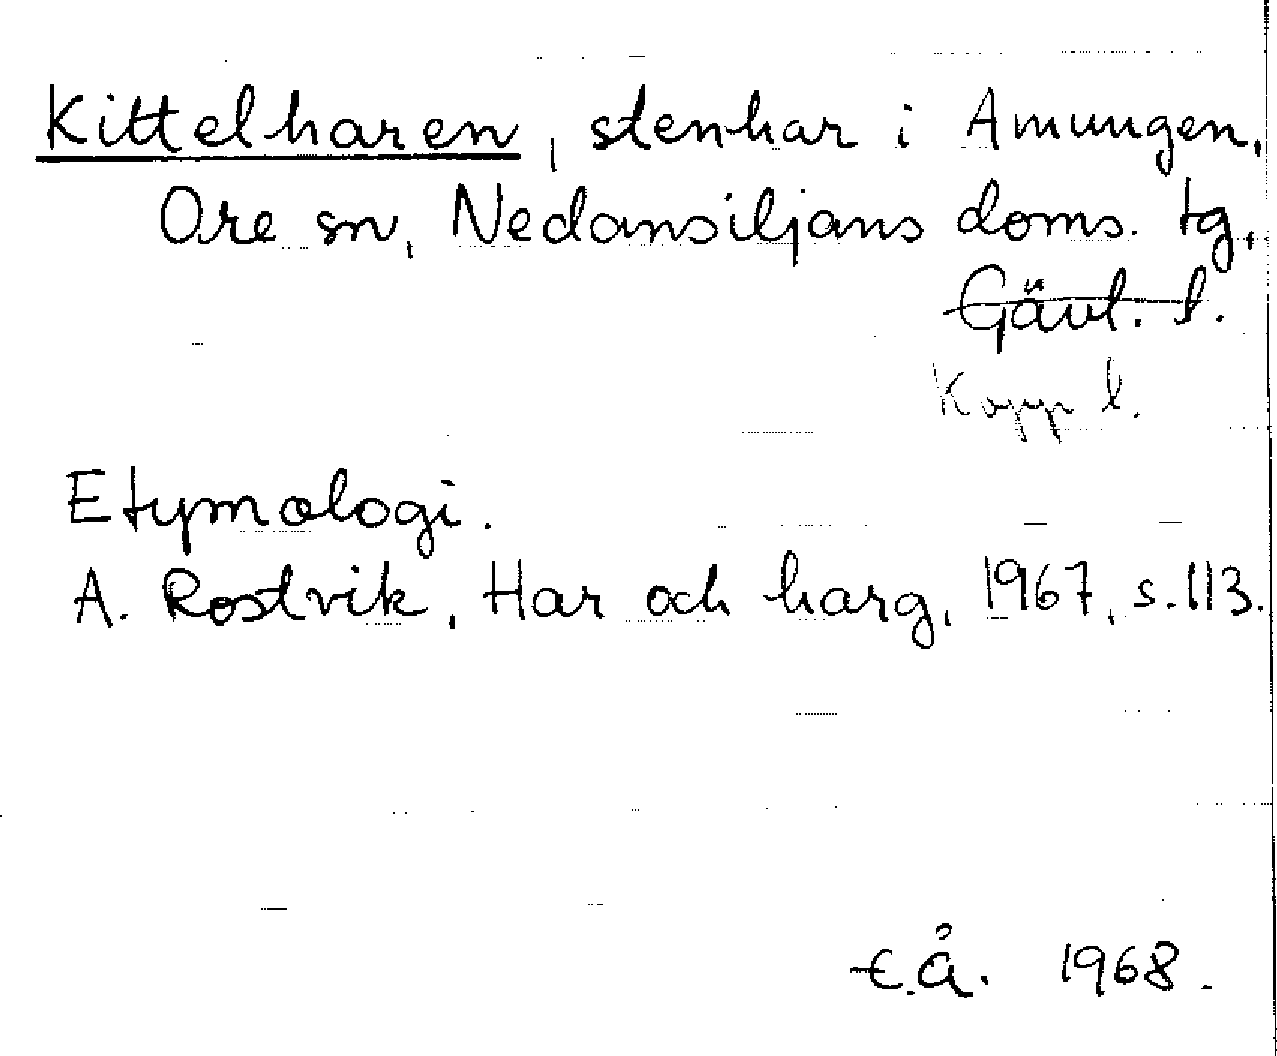 Kittelharen, stenhar i Amungen,
Ore sn, Nedansiljans doms. tg,
Gävl. l.
Kopp l.
Etymologi.
A. Rostvik, Har och harg, 1967, s. 113.
E.Å. 1968.